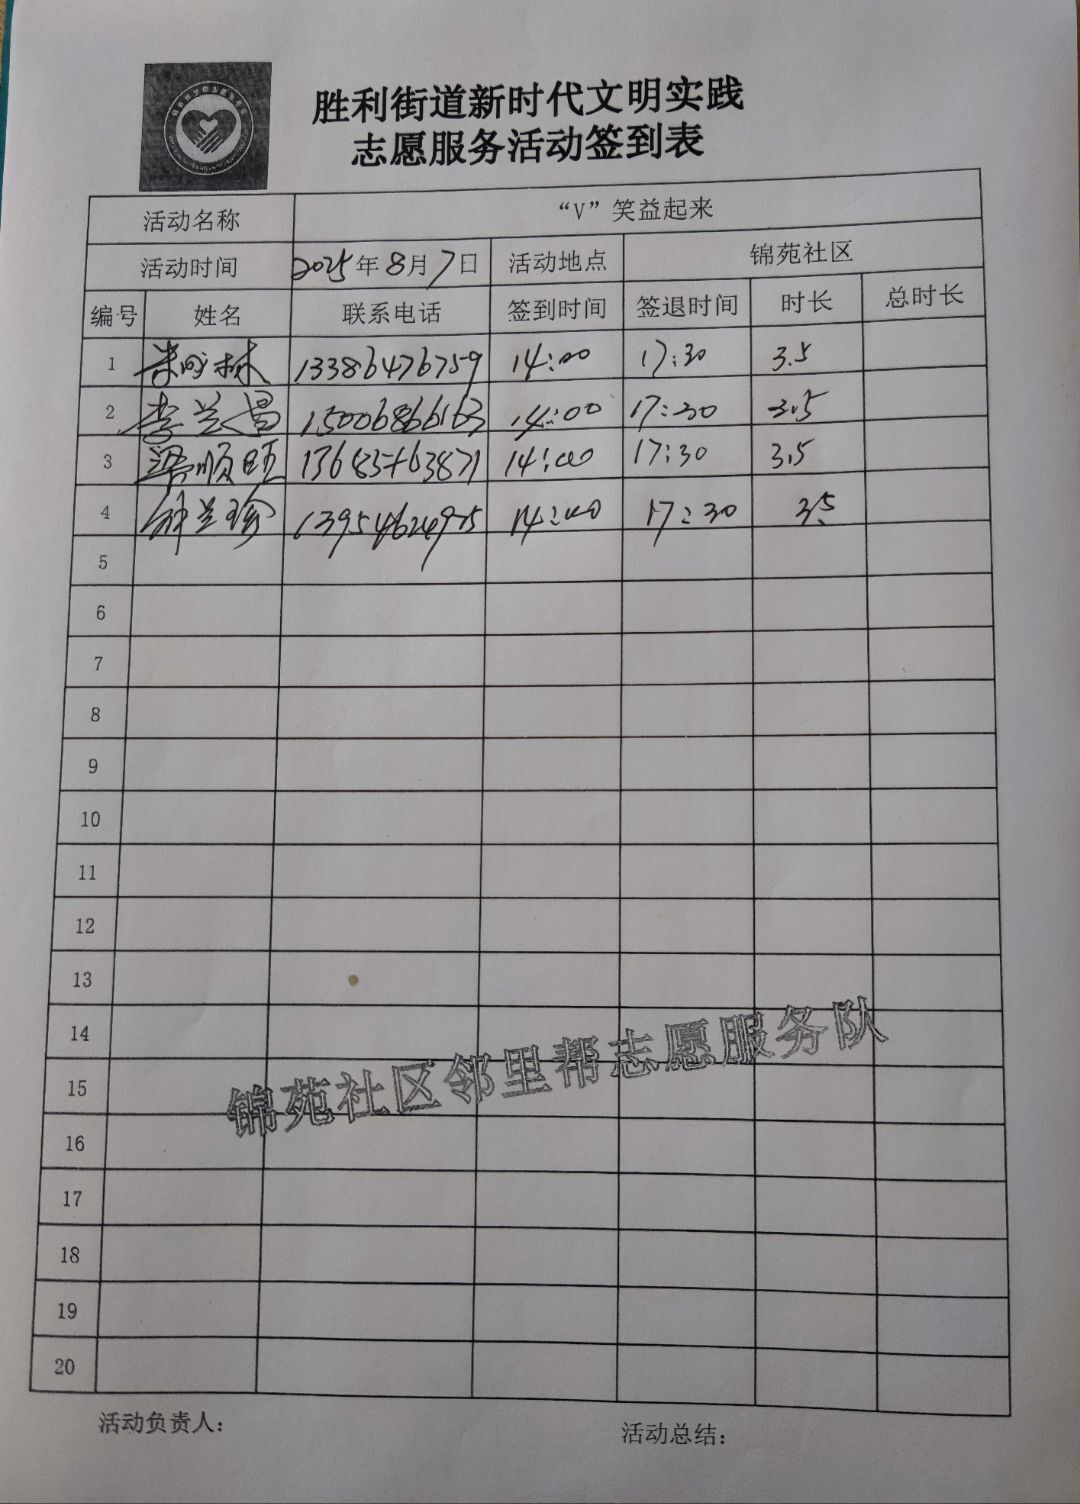 胜利街道新时代文明实践
志愿服务活动签到表
活动名称 “V”笑益起来
活动时间 2025年8月7日 活动地点 锦苑社区
编号 姓名 联系电话 签到时间 签退时间 时长 总时长
1 林 13386476759 14:00 17:30 3.5
2 李兰昌 15006866163 14:00 17:30 3.5
3 梁顺 14:00 17:30 3.5
4 钟兰珍 13954624975 14:00 17:30 3.5
5
6
7
8
9
10
11
12
13
14
锦苑社区邻里帮志愿服务队
15
16
17
18
19
20
活动负责人： 活动总结：